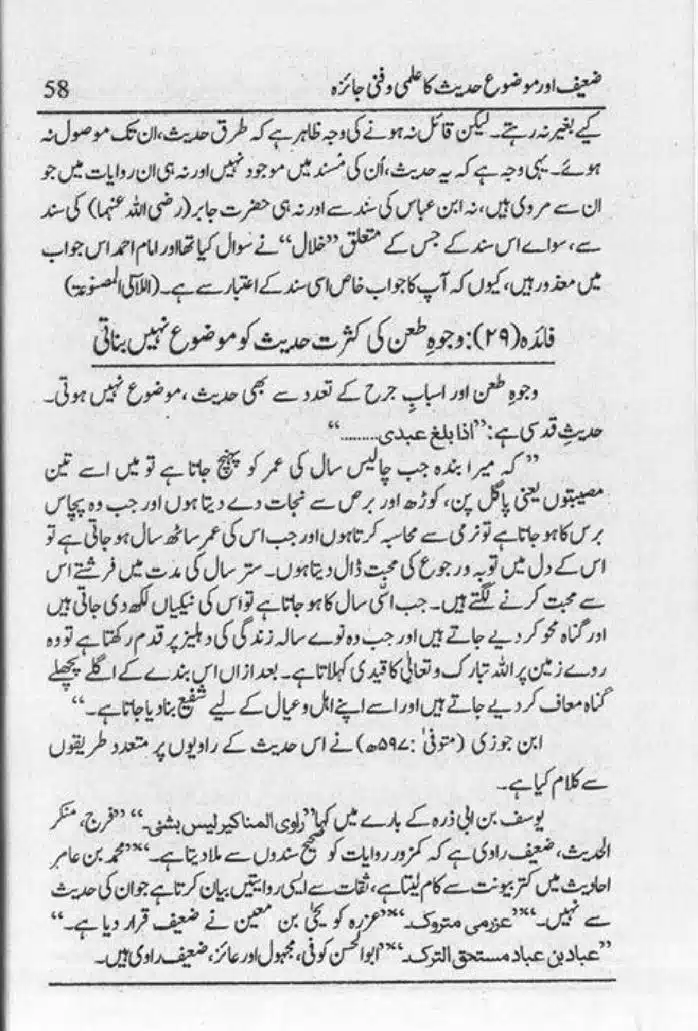 ضعیف اور موضوع حدیث کا علمی و فنی جائزہ 58
کیے بغیر نہ رہتے۔ لیکن قائل نہ ہونے کی وجہ ظاہر ہے کہ طرق حدیث، ان تک موصول نہ
ہوئے۔ یہی وجہ ہے کہ یہ حدیث، اُن کی مُسند میں موجود نہیں اور نہ ہی ان روایات میں جو
ان سے مروی ہیں، نہ ابن عباس کی سند سے اور نہ ہی حضرت جابر (رضی اللہ عنہما) کی سند
سے، سواے اس سند کے جس کے متعلق "خلال" نے سوال کیا تھا اور امام احمد اس جواب
میں معذور ہیں، کیوں کہ آپ کا جواب خاص اسی سند کے اعتبار سے ہے۔ (اللآلی المصنوعۃ)
فائدہ (۲۹): وجوہِ طعن کی کثرت حدیث کو موضوع نہیں بناتی
وجوہِ طعن اور اسبابِ جرح کے تعدد سے بھی حدیث، موضوع نہیں ہوتی۔
حدیثِ قدسی ہے: "اذا بلغ عبدی........."
"کہ میرا بندہ جب چالیس سال کی عمر کو پہنچ جاتا ہے تو میں اسے تین
مصیبتوں یعنی پاگل پن، کوڑھ اور برص سے نجات دے دیتا ہوں اور جب وہ پچاس
برس کا ہو جاتا ہے تو نرمی سے محاسبہ کرتا ہوں اور جب اس کی عمر ساٹھ سال ہو جاتی ہے تو
اس کے دل میں توبہ و رجوع کی محبت ڈال دیتا ہوں۔ ستر سال کی مدت میں فرشتے اس
سے محبت کرنے لگتے ہیں۔ جب اسّی سال کا ہو جاتا ہے تو اس کی نیکیاں لکھ دی جاتی ہیں
اور گناہ محو کر دیے جاتے ہیں اور جب وہ نوے سالہ زندگی کی دہلیز پر قدم رکھتا ہے تو وہ
روے زمین پر اللہ تبارک و تعالیٰ کا قیدی کہلاتا ہے۔ بعد ازاں اس بندے کے اگلے پچھلے
گناہ معاف کر دیے جاتے ہیں اور اسے اپنے اہل و عیال کے لیے شفیع بنا دیا جاتا ہے۔"
ابن جوزی (متوفیٰ: ۵۹۷ھ) نے اس حدیث کے راویوں پر متعدد طریقوں
سے کلام کیا ہے۔
یوسف بن ابی ذرہ کے بارے میں کہا "راوی المناکیر لیس بشئی۔" "فرج، منکر
الحدیث، ضعیف راوی ہے کہ کمزور روایات کو صحیح سندوں سے ملا دیتا ہے۔" "محمد بن عامر
احادیث میں کتر بیونت سے کام لیتا ہے، ثقات سے ایسی روایتیں بیان کرتا ہے جو ان کی حدیث
سے نہیں۔" "عزرمی متروک۔" "عزرہ کو یحیٰ بن معین نے ضعیف قرار دیا ہے۔"
"عباد بن عباد مستحق الترک۔" "ابو الحسن کوفی، مجہول اور عائز، ضعیف راوی ہیں۔